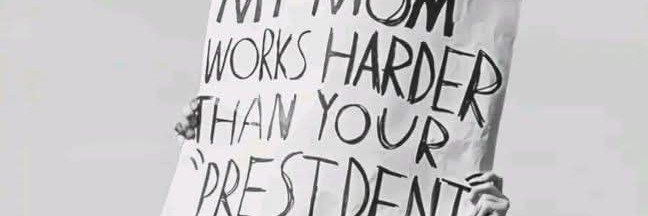 MY MOM
WORKS HARDER
THAN YOUR
"PRESIDENT"